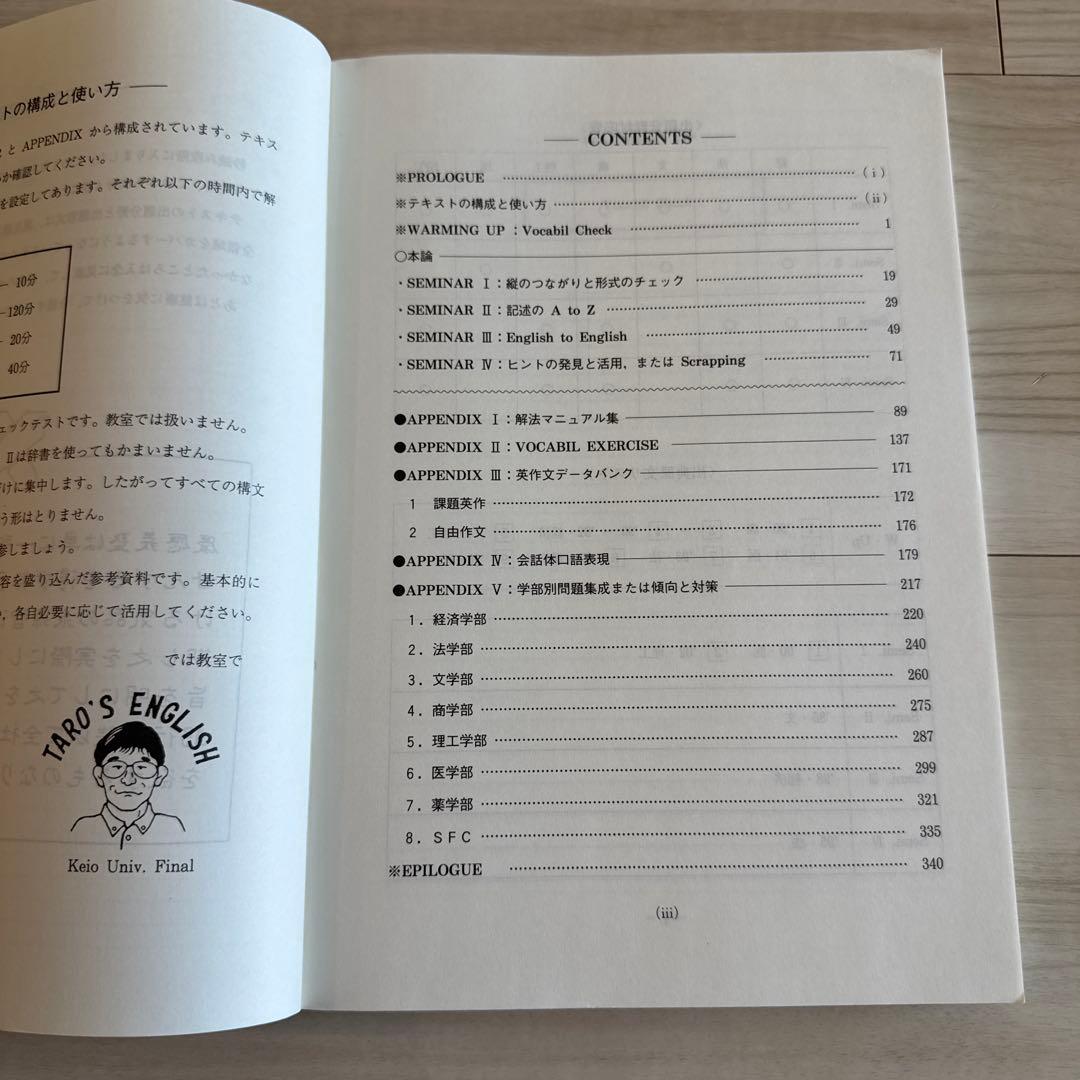 トの構成と使い方 ——
と APPENDIX から構成されています。テキス
か確認してください。
を設定してあります。それぞれ以下の時間内で解
— 10分
—120分
— 20分
40分
ェックテストです。教室では扱いません。
Ⅱは辞書を使ってもかまいません。
けに集中します。したがってすべての構文
う形はとりません。
参しましょう。
容を盛り込んだ参考資料です。基本的に
各自必要に応じて活用してください。
では教室で
TARO'S ENGLISH
Keio Univ. Final
—— CONTENTS ——
※PROLOGUE ……… (ⅰ)
※テキストの構成と使い方 ……… (ⅱ)
※WARMING UP：Vocabil Check ……… 1
○本論
・SEMINAR Ⅰ：縦のつながりと形式のチェック ……… 19
・SEMINAR Ⅱ：記述の A to Z ……… 29
・SEMINAR Ⅲ：English to English ……… 49
・SEMINAR Ⅳ：ヒントの発見と活用，または Scrapping ……… 71
●APPENDIX Ⅰ：解法マニュアル集 89
●APPENDIX Ⅱ：VOCABIL EXERCISE 137
●APPENDIX Ⅲ：英作文データバンク 171
1 課題英作 ……… 172
2 自由作文 ……… 176
●APPENDIX Ⅳ：会話体口語表現 179
●APPENDIX Ⅴ：学部別問題集成または傾向と対策 217
1．経済学部 ……… 220
2．法学部 ……… 240
3．文学部 ……… 260
4．商学部 ……… 275
5．理工学部 ……… 287
6．医学部 ……… 299
7．薬学部 ……… 321
8．ＳＦＣ ……… 335
※EPILOGUE ……… 340
(ⅲ)